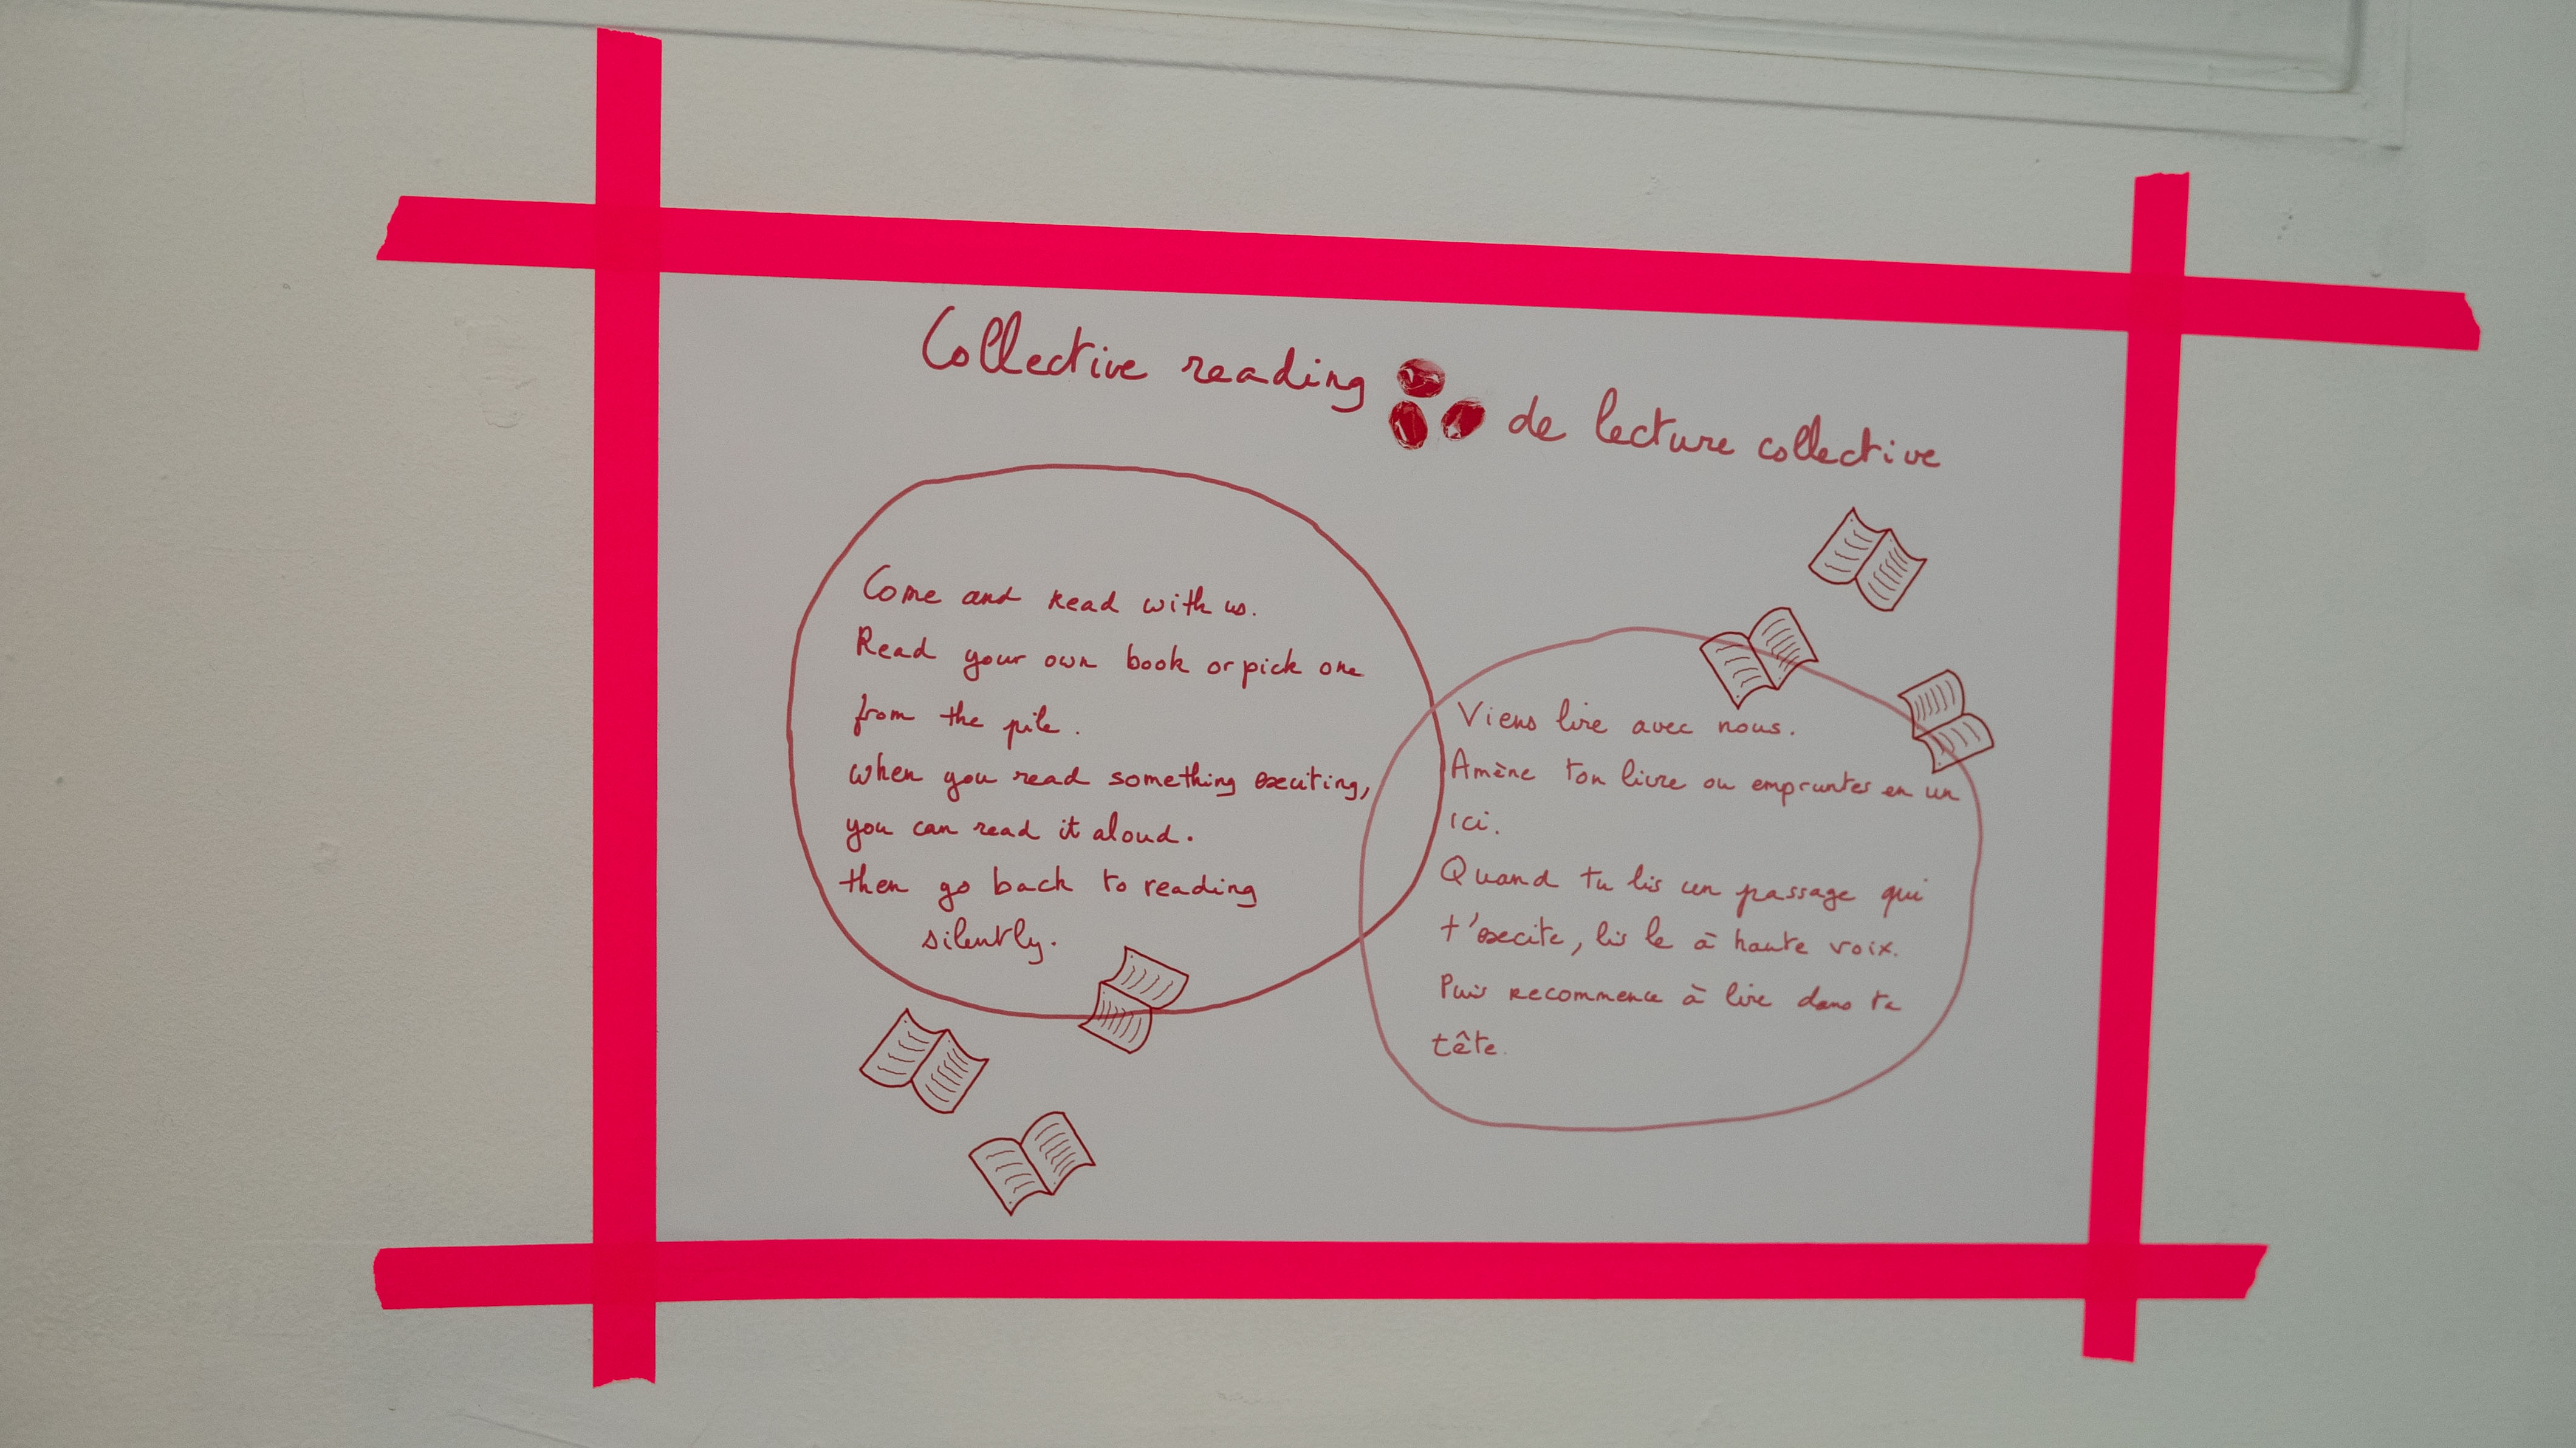 Collective reading de lecture collective
Come and read with us.
Read your own book or pick one
from the pile.
when you read something exciting,
you can read it aloud.
then go back to reading
silently.
Viens lire avec nous.
Amène ton livre ou empruntes en un
ici.
Quand tu lis un passage qui
t'excite, lis le à haute voix.
Puis recommence à lire dans ta
tête.